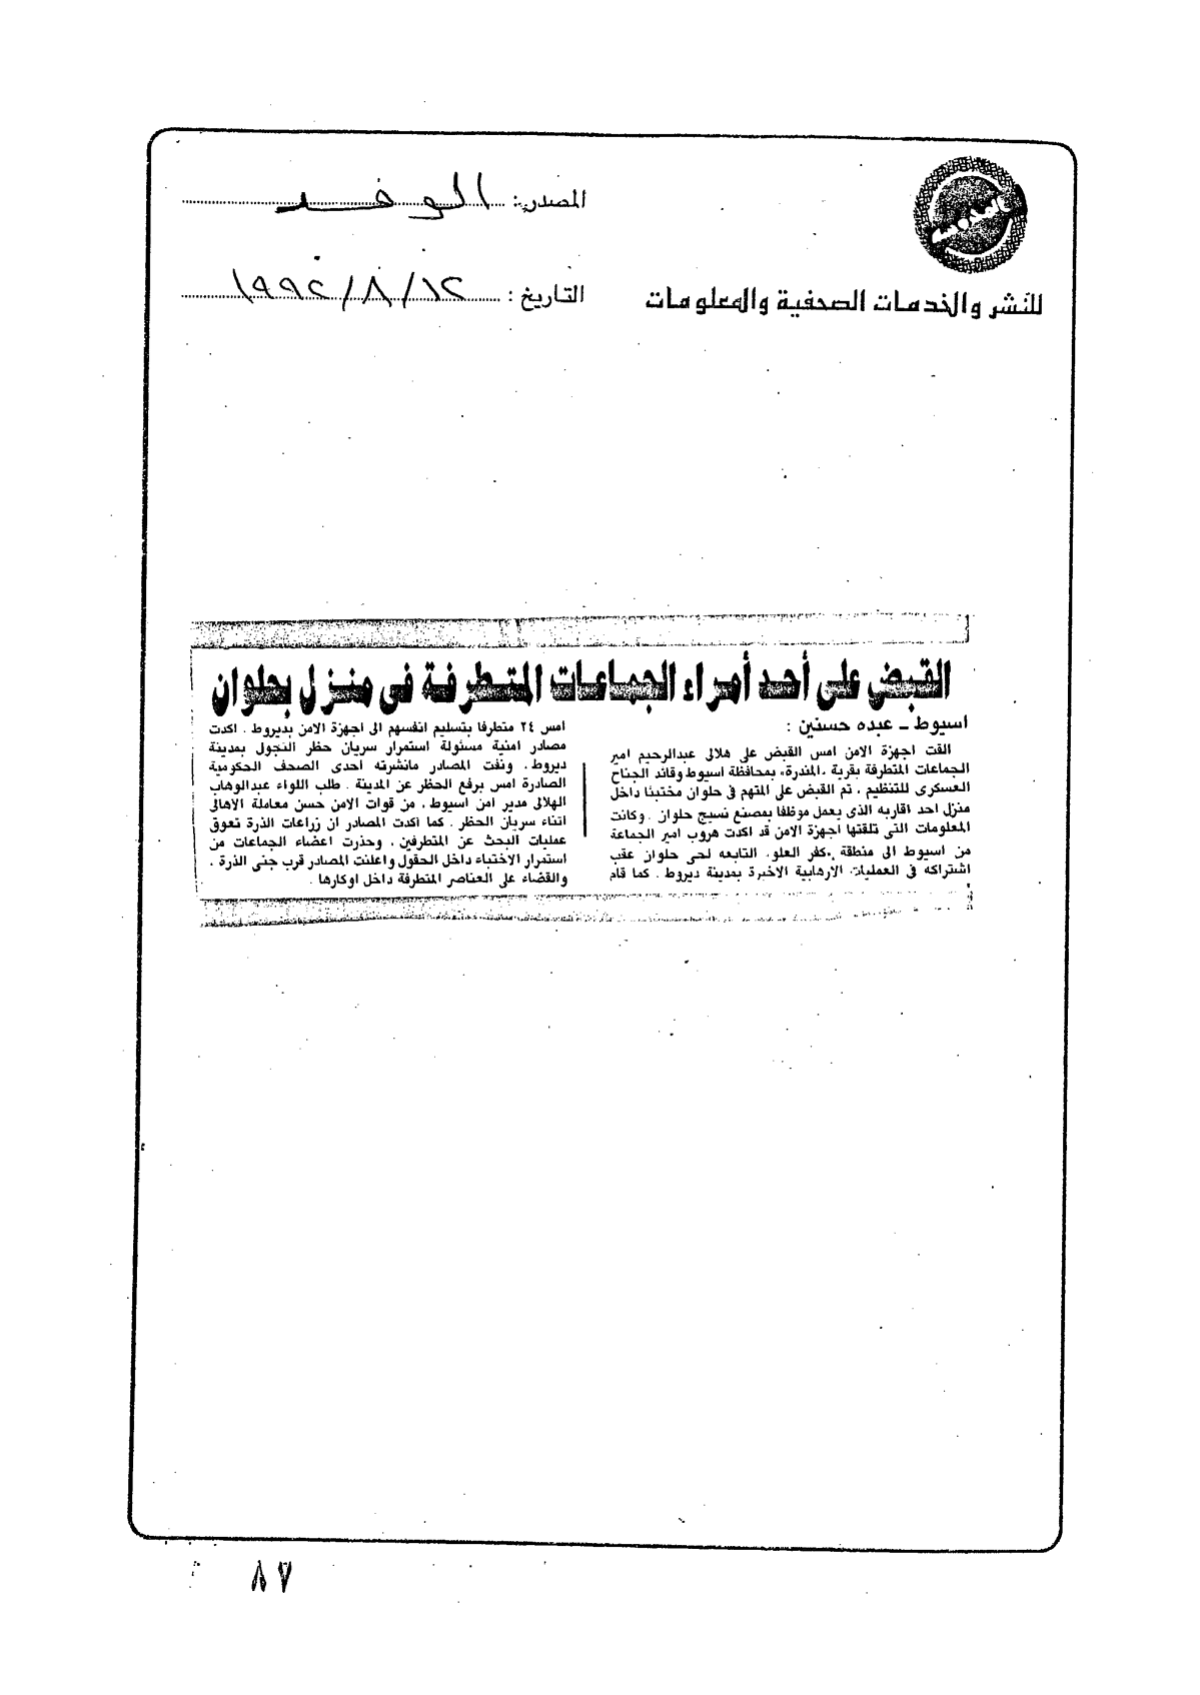 المصدر: الوفد
التاريخ: ١٩٩٢/٨/١٢
للنشر والخدمات الصحفية والمعلومات
القبض على أحد أمراء الجماعات المتطرفة فى منزل بحلوان
اسيوط ـ عبده حسنين :
القت اجهزة الامن امس القبض على هلالى عبدالرحيم امير
الجماعات المتطرفة بقرية «المندرة» بمحافظة اسيوط وقائد الجناح
العسكرى للتنظيم . تم القبض على المتهم فى حلوان مختبئا داخل
منزل احد اقاربه الذى يعمل موظفا بمصنع نسيج حلوان . وكانت
المعلومات التى تلقتها اجهزة الامن قد اكدت هروب امير الجماعة
من اسيوط الى منطقة «كفر العلو» التابعه لحى حلوان عقب
اشتراكه فى العمليات الارهابية الاخيرة بمدينة ديروط . كما قام
امس ٢٤ متطرفا بتسليم انفسهم الى اجهزة الامن بديروط . اكدت
مصادر امنية مسئولة استمرار سريان حظر التجول بمدينة
ديروط . ونفت المصادر مانشرته احدى الصحف الحكومية
الصادرة امس برفع الحظر عن المدينة . طلب اللواء عبدالوهاب
الهلالى مدير امن اسيوط . من قوات الامن حسن معاملة الاهالى
اثناء سريان الحظر . كما اكدت المصادر ان زراعات الذرة تعوق
عمليات البحث عن المتطرفين . وحذرت اعضاء الجماعات من
استمرار الاختباء داخل الحقول واعلنت المصادر قرب جنى الذرة .
والقضاء على العناصر المتطرفة داخل اوكارها .
٨٧